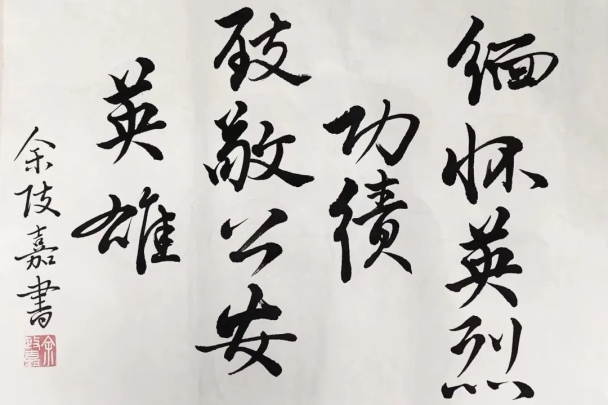 缅怀英烈
功绩
致敬公安
英雄
余陵嘉书